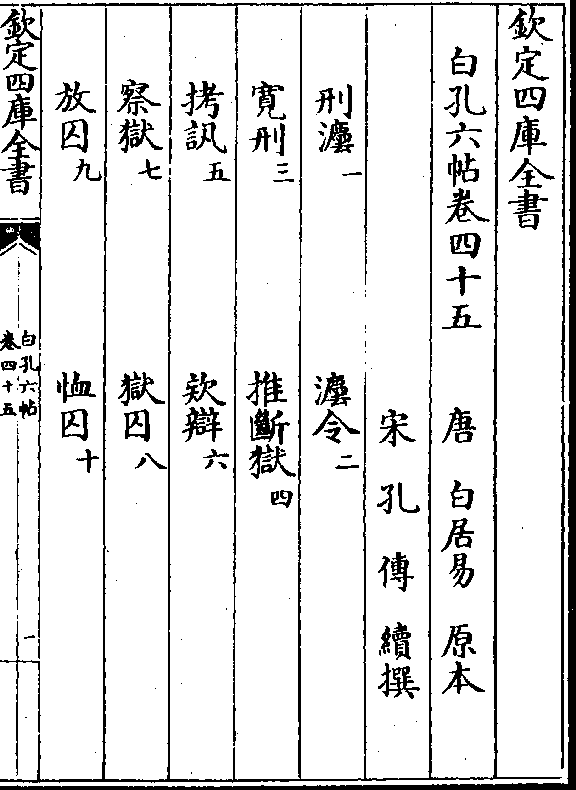 欽定四庫全書
白孔六帖卷四十五　唐　白居易　原本
宋　孔　傳　續撰
刑灋一　灋令二
寛刑三　推斷獄四
拷訊五　欵辯六
察獄七　獄囚八
放囚九　恤囚十
欽定四庫全書
白孔六帖
卷四十五
一